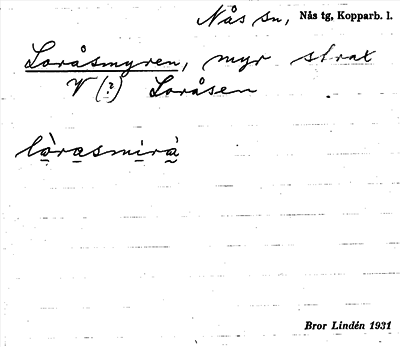 Nås sn, Nås tg, Kopparb. l.
Loråsmyren, myr strax
V (?) Loråsen
lò̱ra̱smi̱rà̰
Bror Lindén 1931